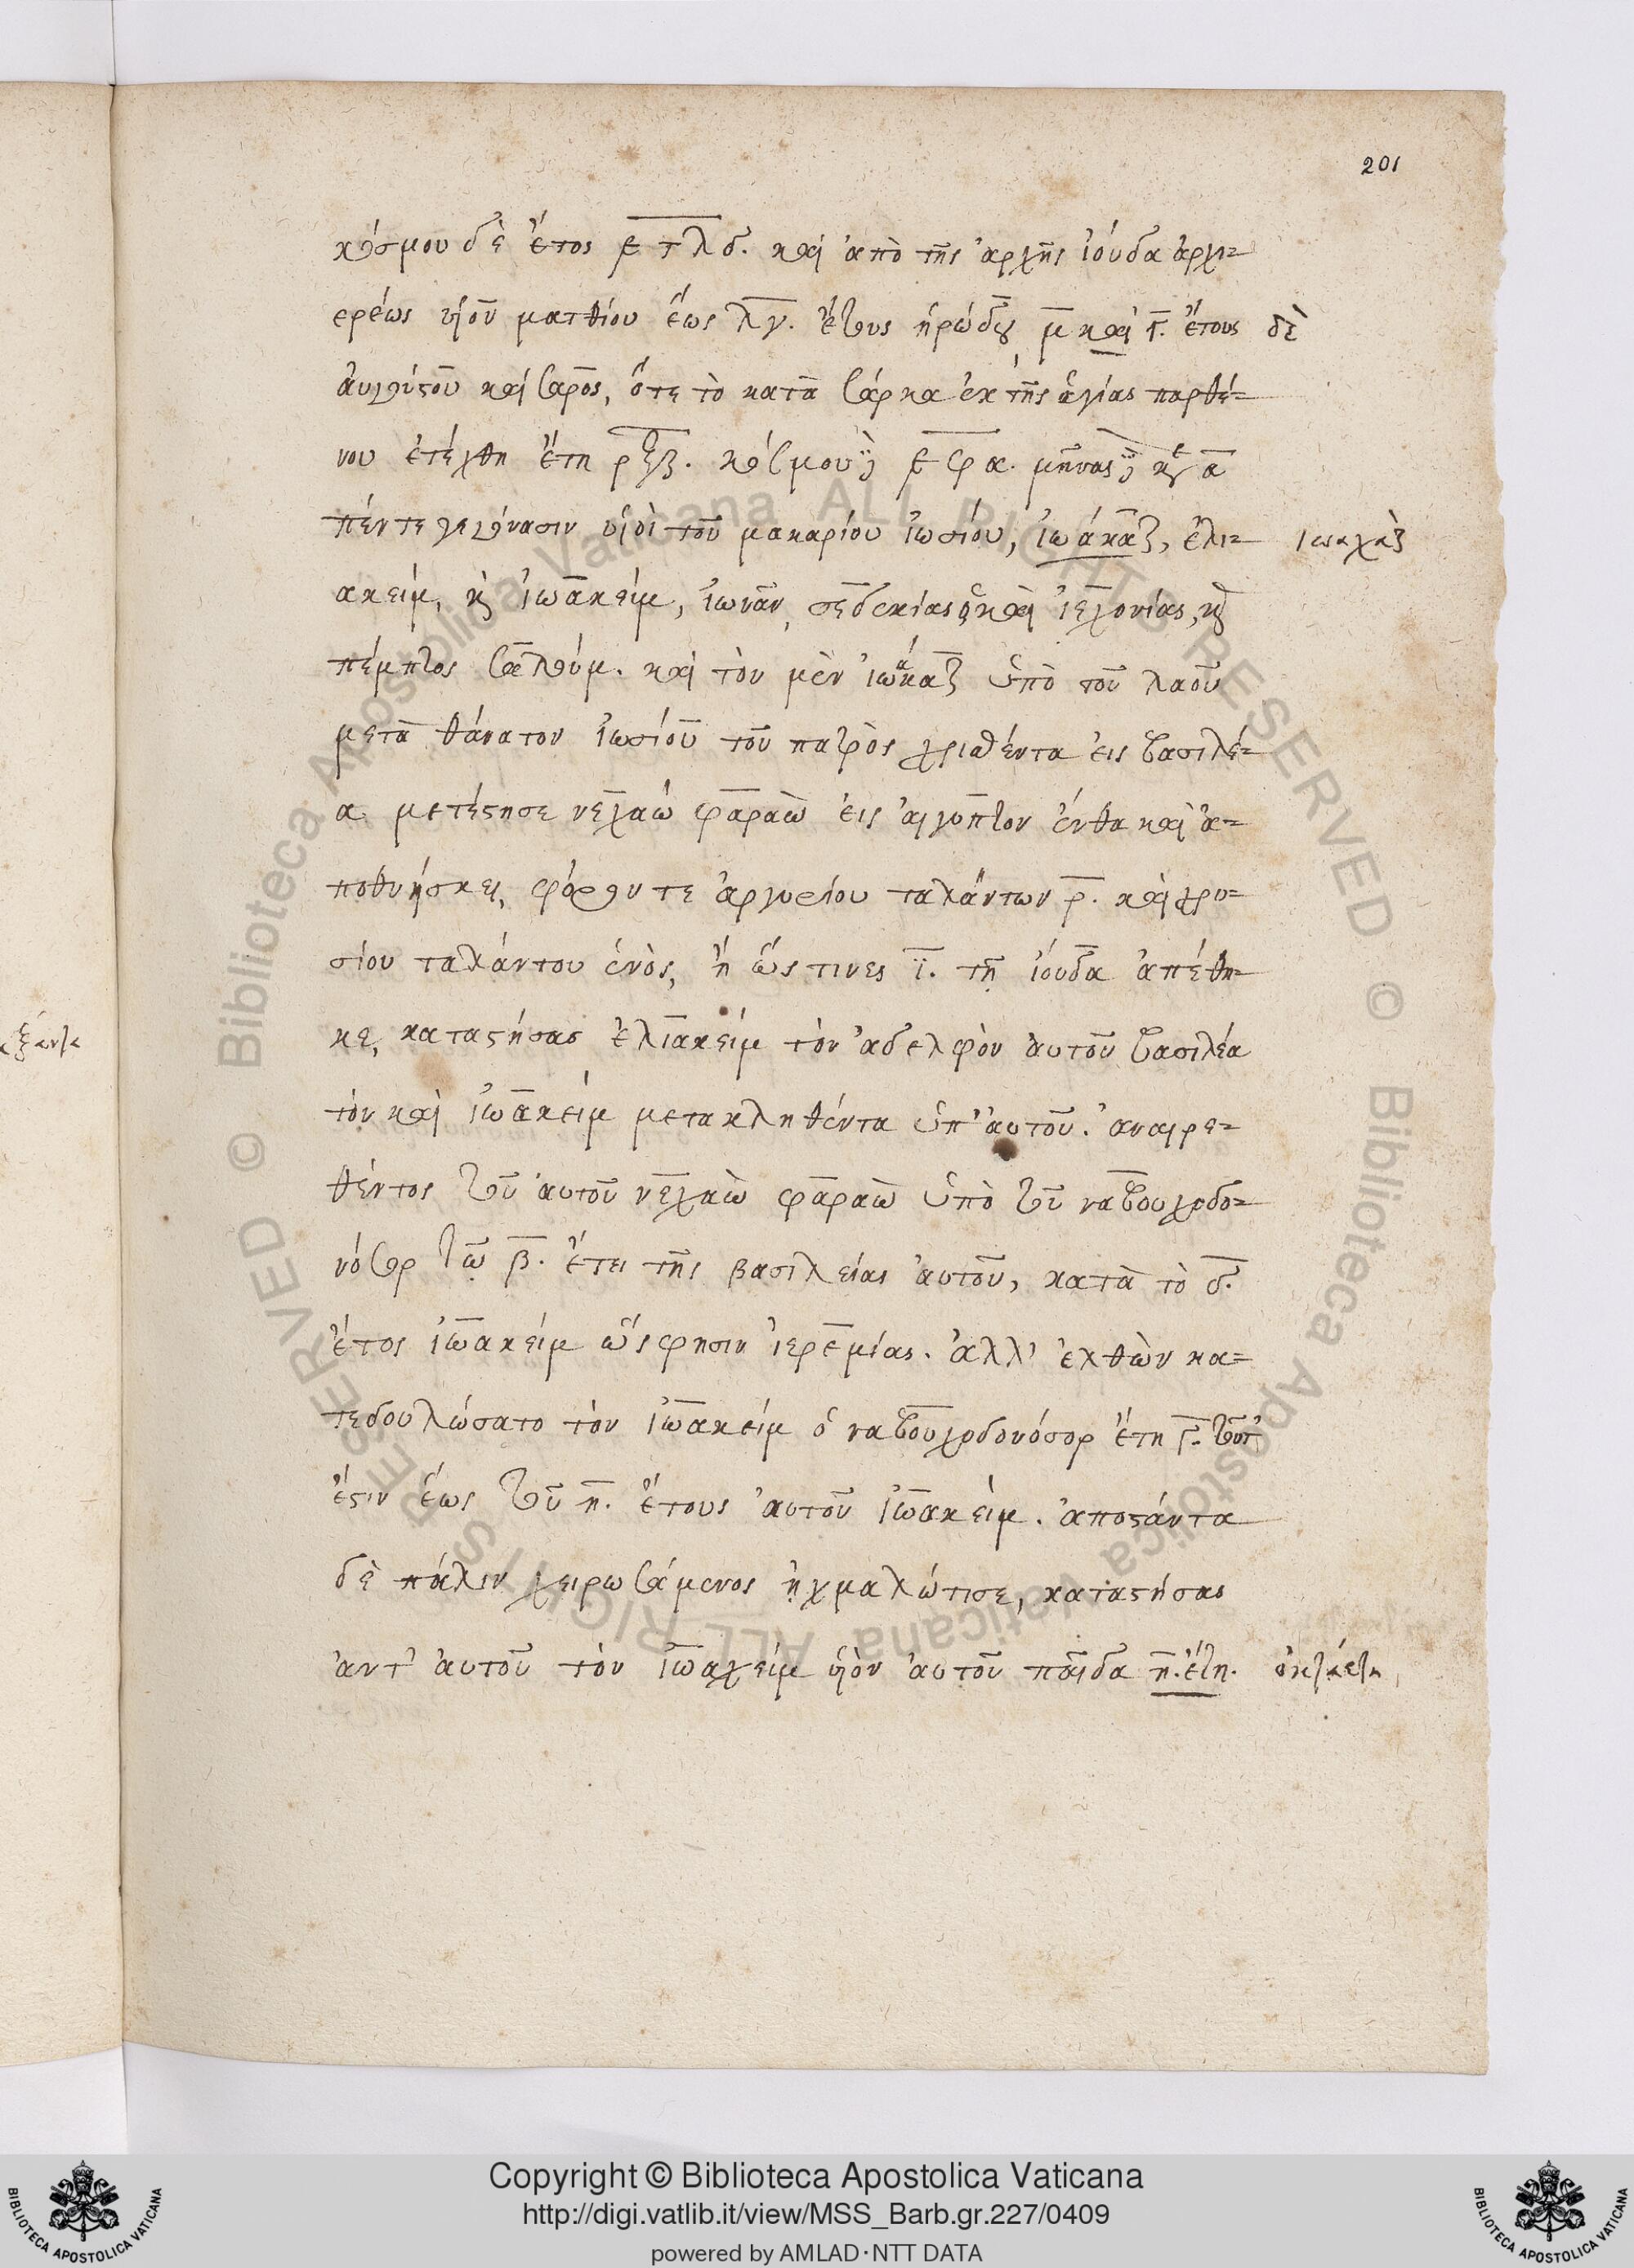 201
κόσμου δὲ ἔτος ͵ετλδ. καὶ ἀπὸ τῆς ἀρχῆς ἰούδα ἀρχι=
ερέως υἱοῦ ματθίου ἕως λγ. ἔτους ἡρώδου μ καὶ γ. ἔτους δὲ
ἀυγούστου καίσαρος, ὅτε τὸ κατὰ σάρκα ἐκ τῆς ἁγίας παρθέ=
νου ἐτέχθη ἔτη ρξζ. κόσμου ͵εφα. μῆνας
πέντε γεγόνασιν υἱοὶ τοῦ μακαρίου ἰωσίου, ἰωάκαζ, ἐλι= ιωαχὰζ
ακείμ, κ ἰωακείμ, ἰωνᾶν, σεδεκίας ὁ καὶ ἰεχονίας, κ
πέμπτος σαλούμ. καὶ τὸν μὲν ἰωάκαζ ὑπὸ τοῦ λαοῦ
μετὰ θάνατον ἰωσίου τοῦ πατρὸς χρισθέντα εἰς βασιλέ=
α μετέστησε νεχαὼ φαραὼ εἰς αἴγυπτον ἔνθα καὶ ἀ=
ποθνήσκει, φόρον τε ἀργυρίου ταλάντων ρ. καὶ χρυ=
σίου ταλάντου ἑνὸς, ἢ ὥς τινες ϊ. τῇ ἰούδα ἀπέθη=
κε, καταστήσας ἐλιακεὶμ τὸν ἀδελφὸν ἀυτοῦ βασιλέα
τὸν καὶ ἰωακείμ μετακληθέντα ὑπ' ἀυτοῦ. ἀναιρε=
θέντος τοῦ ἀυτοῦ νεχαὼ φαραὼ ὑπὸ τοῦ ναβουχοδο=
νόσορ τῷ β. ἔτει τῆς βασιλείας ἀυτοῦ, κατὰ τὸ δ.
ἔτος ἰωακείμ ὥς φησιν ἰερεμίας. ἀλλ' ἐλθὼν κα=
τεδουλώσατο τὸν ἰωακείμ ὁ ναβουχοδονόσορ ἔτη γ. τοῦτ
ἔστιν ἕως τοῦ η. ἔτους ἀυτοῦ ἰωακείμ. ἀποστάντα
δὲ πάλιν χειρωσάμενος ἠχμαλώτισε, καταστήσας
ἀντ' ἀυτοῦ τὸν ἰωαχείμ υἱὸν ἀυτοῦ παῖδα η. ἔτη. ὀκταέτη
Copyright © Biblioteca Apostolica Vaticana
http://digi.vatlib.it/view/MSS_Barb.gr.227/0409
powered by AMLAD·NTT DATA